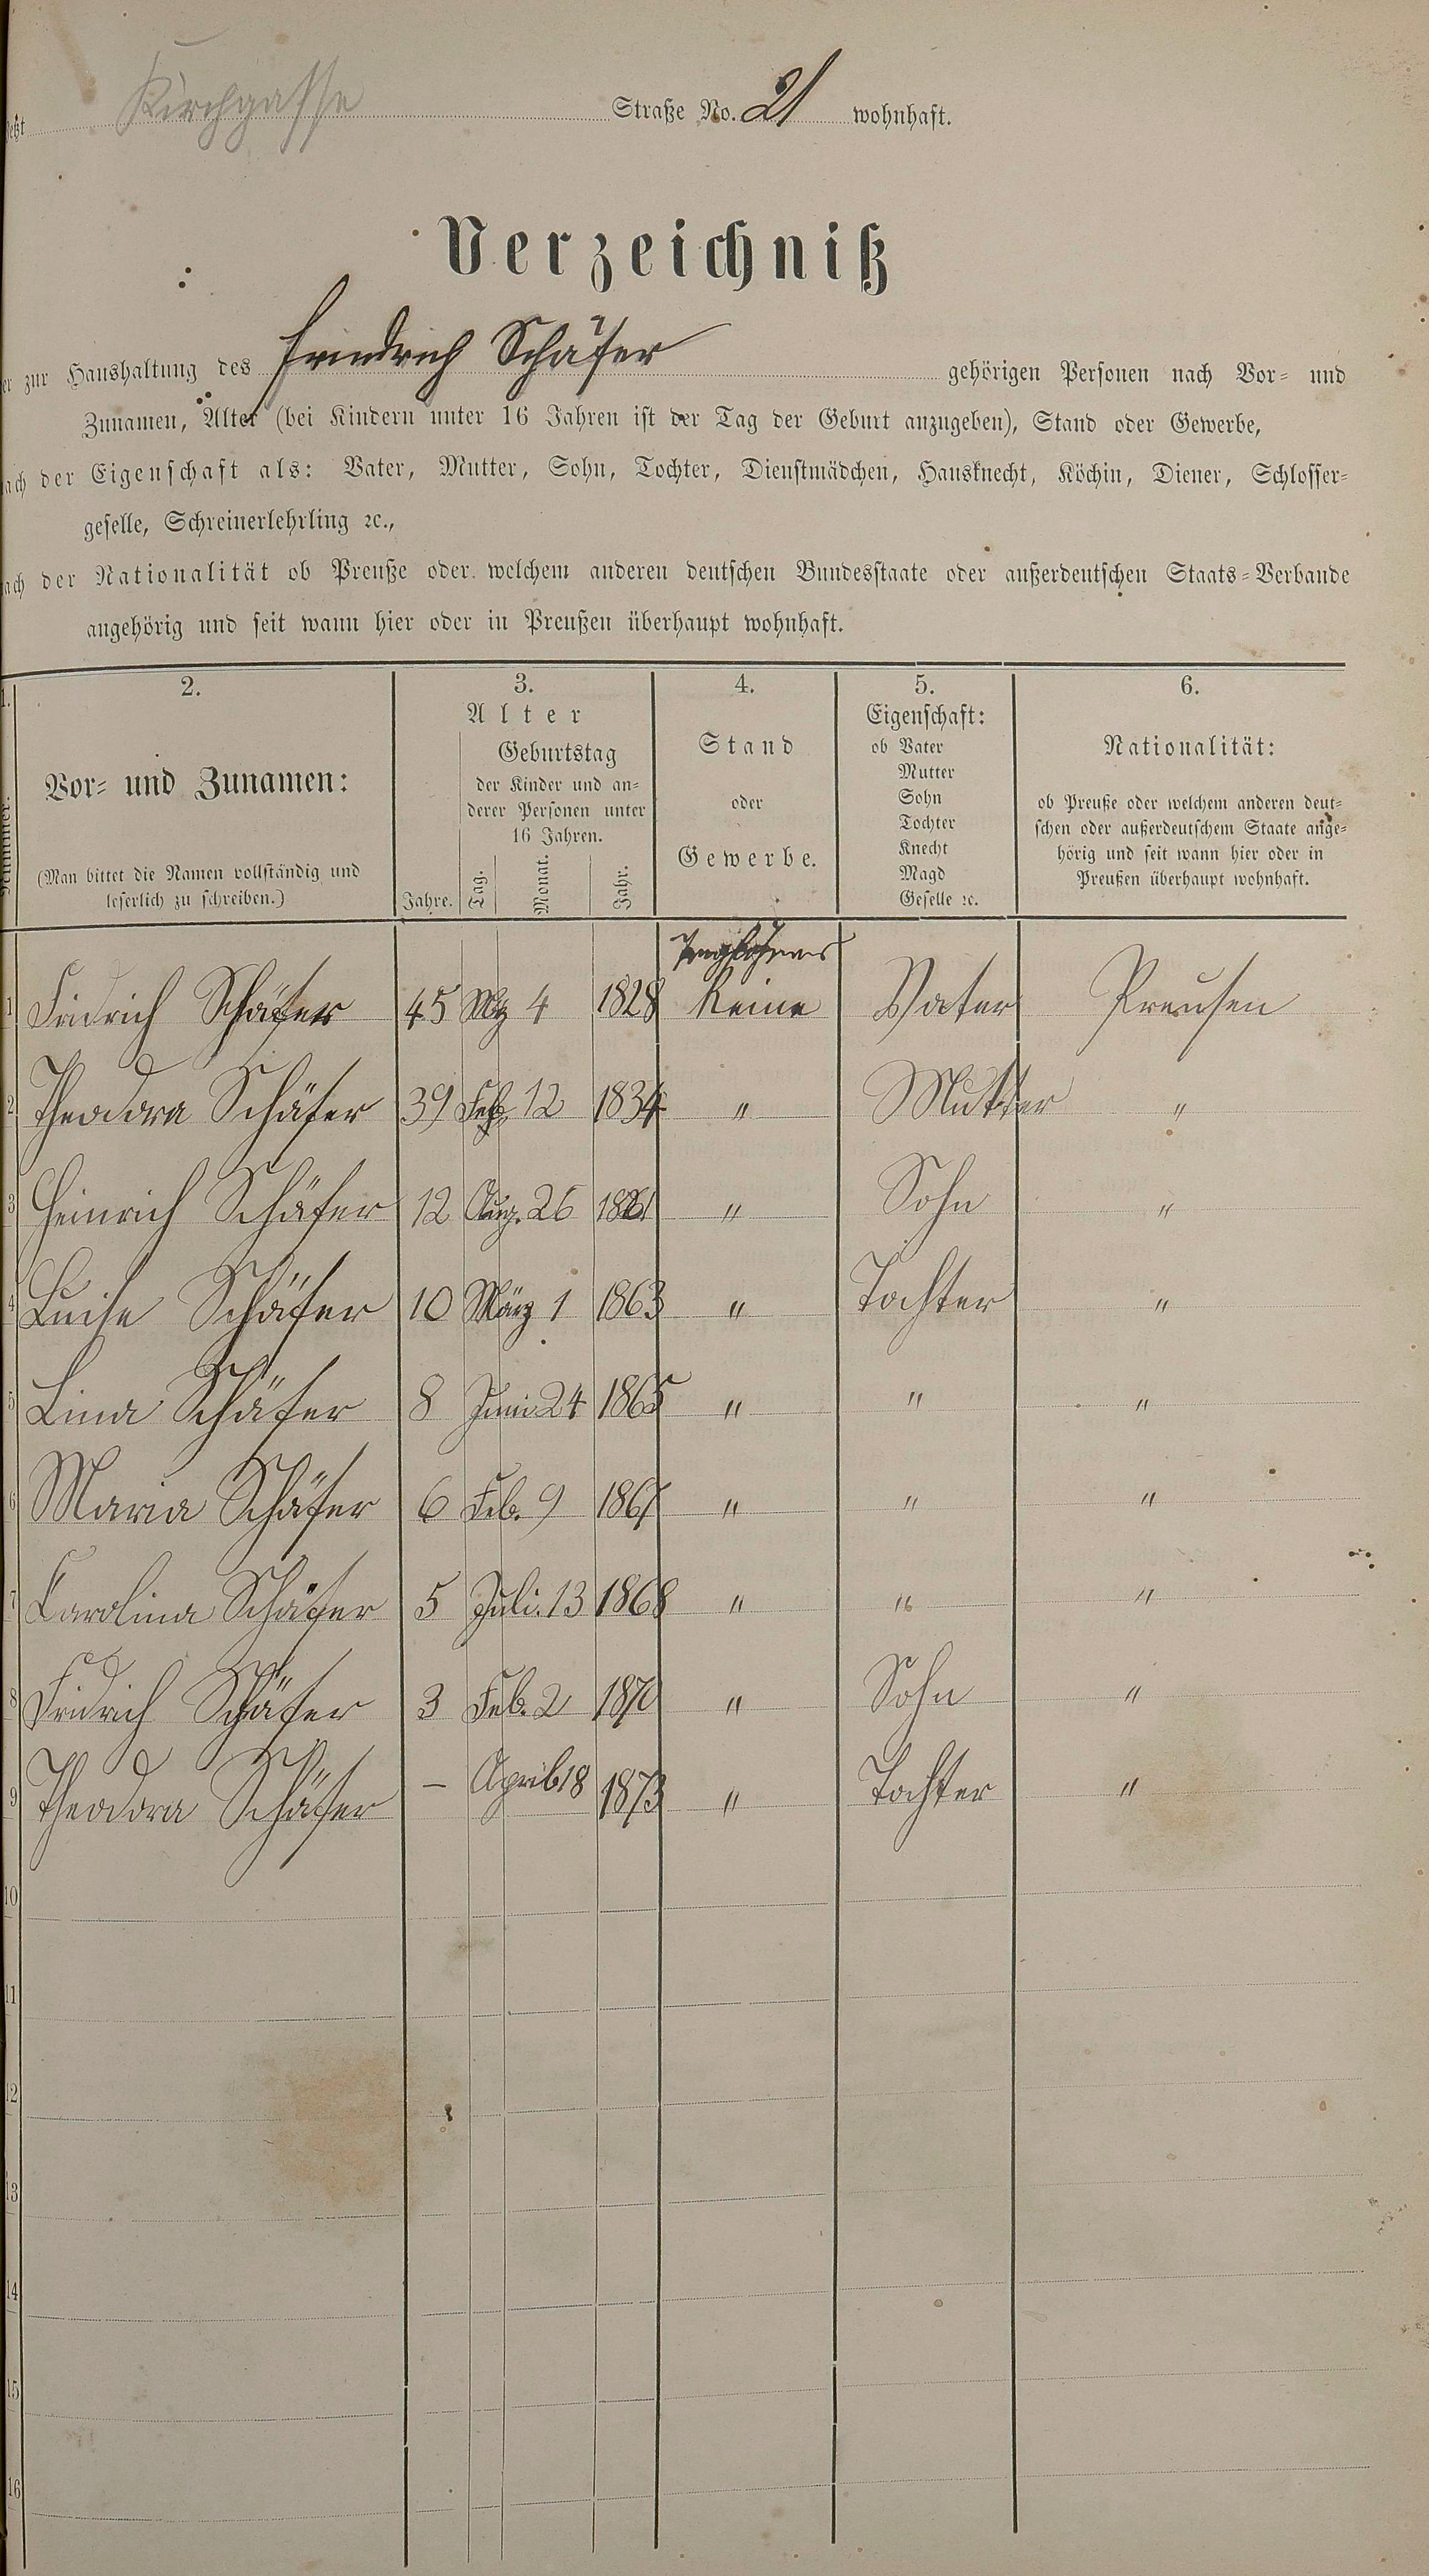 Kirchgasse Straße No. 21 wohnhaft.
Verzeichniß
zur Haushaltung des Friedrich Schäfer gehörigen Personen nach Vor- und
Zunamen, Alter (bei Kindern unter 16 Jahren ist der Tag der Geburt anzugeben), Stand oder Gewerbe,
nach der Eigenschaft als: Vater, Mutter, Sohn, Tochter, Dienstmädchen, Hausknecht, Köchin, Diener, Schlosser-
geselle, Schreinerlehrling ꝛc.,
nach der Nationalität ob Preuße oder welchem anderen deutschen Bundesstaate oder außerdeutschen Staats-Verbande
angehörig und seit wann hier oder in Preußen überhaupt wohnhaft.
1. 2. 3. 4. 5. 6.
Nummer.
Vor- und Zunamen:
(Man bittet die Namen vollständig und
leserlich zu schreiben.)
Alter
Jahre.
Geburtstag
der Kinder und an-
derer Personen unter
16 Jahren.
Tag. Monat. Jahr.
Stand
oder
Gewerbe.
Eigenschaft:
ob Vater
Mutter
Sohn
Tochter
Knecht
Magd
Geselle ꝛc.
Nationalität:
ob Preuße oder welchem anderen deut-
schen oder außerdeutschem Staate ange-
hörig und seit wann hier oder in
Preußen überhaupt wohnhaft.
1 Fridrich Schäfer 45 Mz 4 1828 Keine Vater Preusen
2 Theodora Schäfer 39 Feb. 12 1834 " Mutter "
3 Heinrich Schäfer 12 Aug. 26 1861 " Sohn "
4 Luise Schäfer 10 März 1 1863 " Tochter "
5 Lina Schäfer 8 Juni 24 1865 " " "
6 Maria Schäfer 6 Feb. 9 1867 " " "
7 Carolina Schäfer 5 Juli. 13 1868 " " "
8 Fridrich Schäfer 3 Feb. 2 1870 " Sohn "
9 Theodora Schäfer – April 18 1873 " Tochter "
10
11
12
13
14
15
16